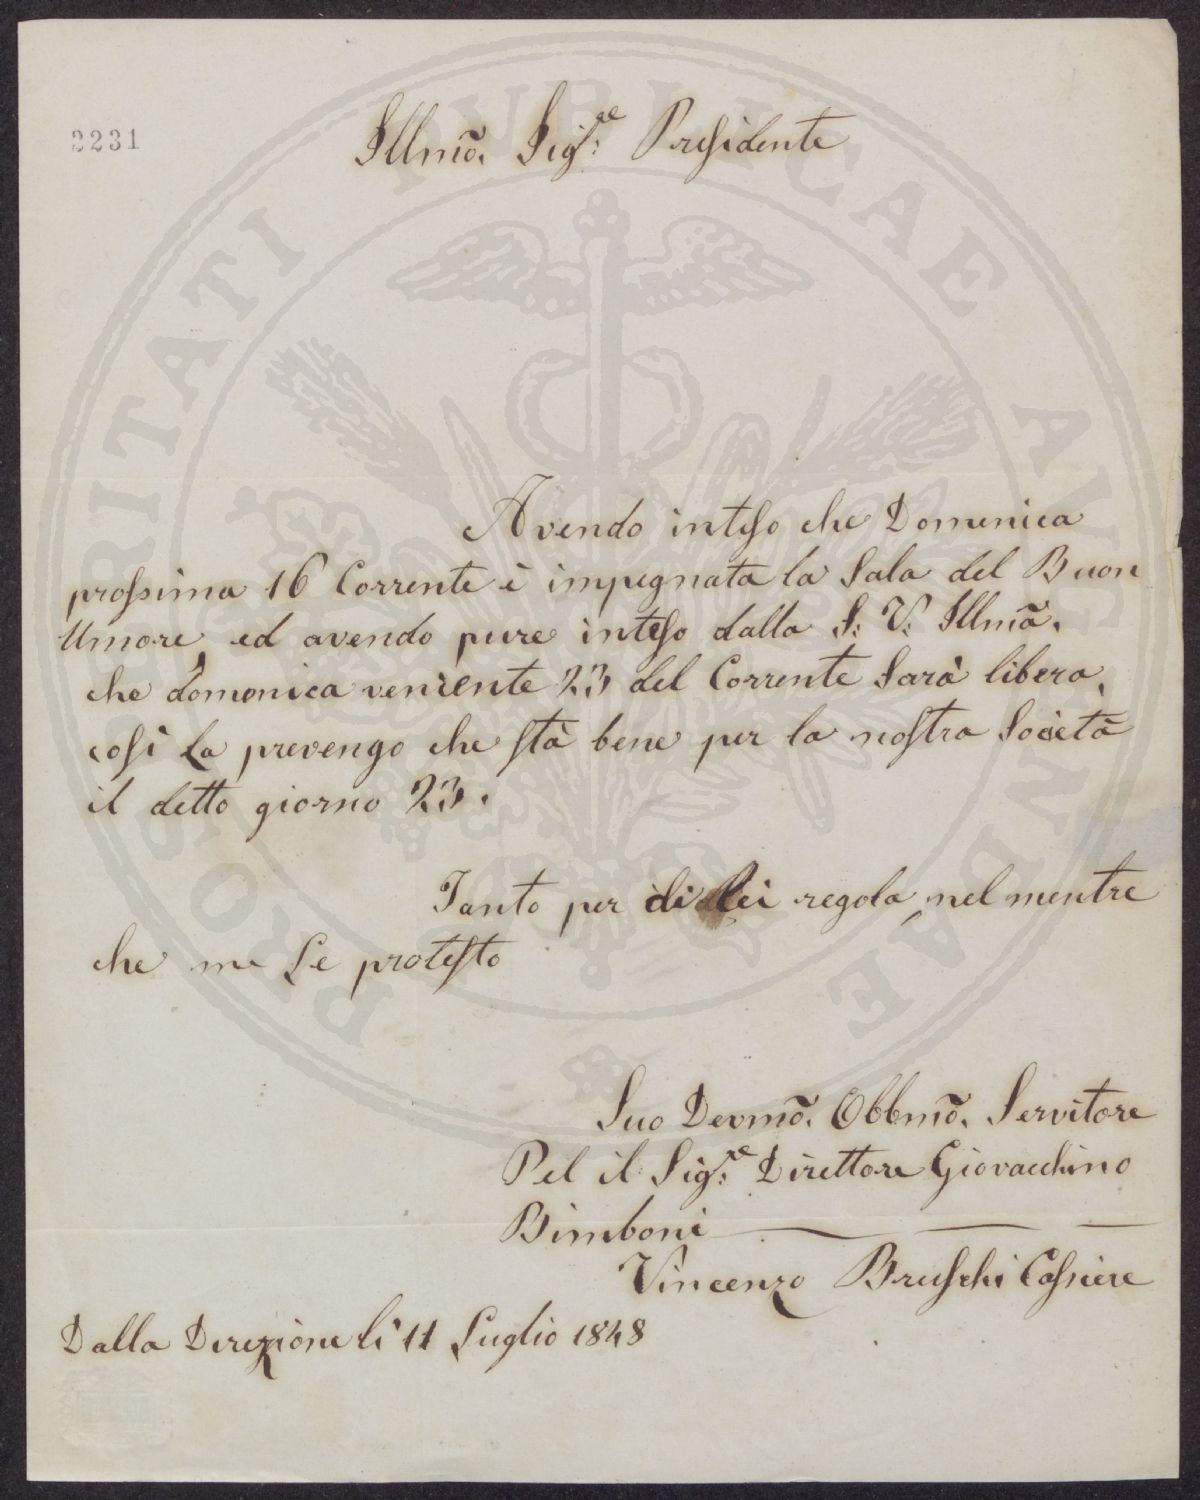 2231
Illmõ. Sigre: Presidente
Avendo inteso che Domenica
prossima 16 Corrente è impegnata la Sala del Buon
Umore, ed avendo pure inteso dalla S: V: Illmã.
che domenica veniente 23 del Corrente Sarà libera,
così La prevengo che stà bene per la nostra Società
il detto giorno 23.
Tanto per di lei regola, nel mentre
che me Le protesto
Suo Devmõ. Obbmõ. Servitore
Pel il Sigre: Direttore Giovacchino
Bimboni
Vincenzo Bruschi Cassiere
Dalla Direzione li 11 Luglio 1848
PROSPERITATI PUBLICAE AUGENDAE